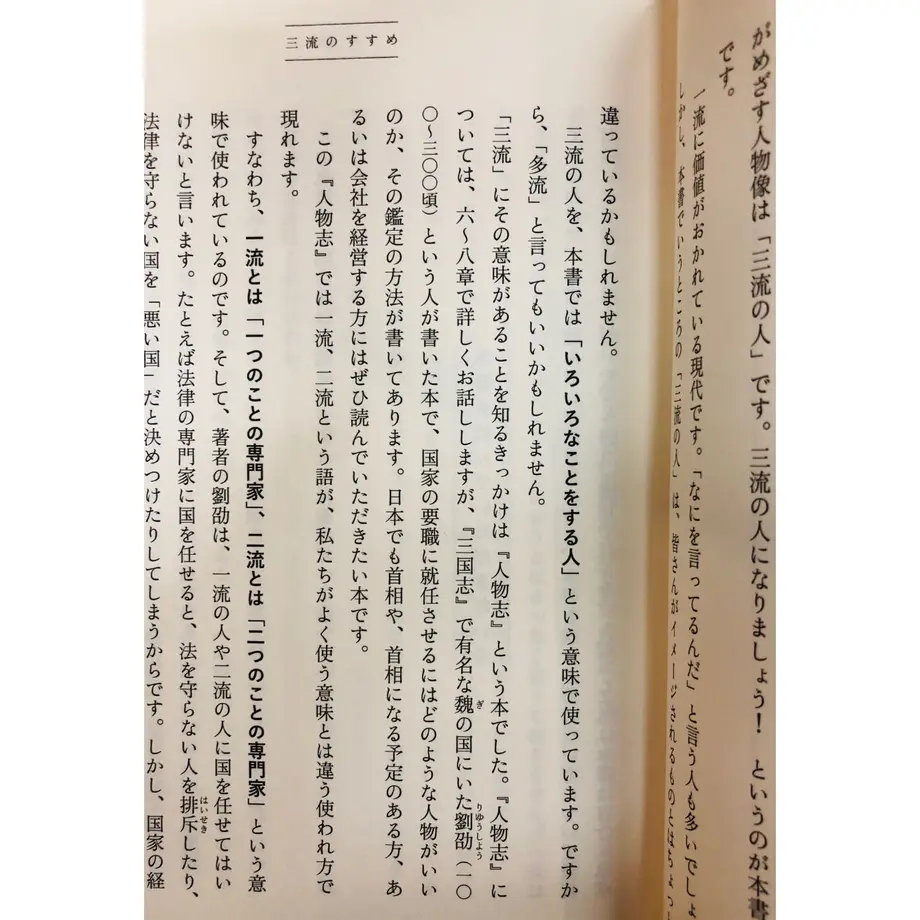 がめざす人物像は「三流の人」です。三流の人になりましょう！　というのが本書
です。
一流に価値がおかれている現代です。「なにを言ってるんだ」と言う人も多いでしょ
しかし、本書でいうところの「三流の人」は、皆さんがイメージされるものとはちょっ
三流のすすめ
違っているかもしれません。
三流の人を、本書では「いろいろなことをする人」という意味で使っています。ですか
ら、「多流」と言ってもいいかもしれません。
「三流」にその意味があることを知るきっかけは『人物志』という本でした。『人物志』に
ぎ
りゆうしよう
ついては、六〜八章で詳しくお話ししますが、『三国志』で有名な魏の国にいた劉劭（一〇
〇〜三〇〇頃）という人が書いた本で、国家の要職に就任させるにはどのような人物がいい
のか、その鑑定の方法が書いてあります。日本でも首相や、首相になる予定のある方、あ
るいは会社を経営する方にはぜひ読んでいただきたい本です。
この『人物志』では一流、二流という語が、私たちがよく使う意味とは違う使われ方で
現れます。
すなわち、一流とは「一つのことの専門家」、二流とは「二つのことの専門家」という意
味で使われているのです。そして、著者の劉劭は、一流の人や二流の人に国を任せてはい
はいせき
けないと言います。たとえば法律の専門家に国を任せると、法を守らない人を排斥したり、
法律を守らない国を「悪い国」だと決めつけたりしてしまうからです。しかし、国家の経